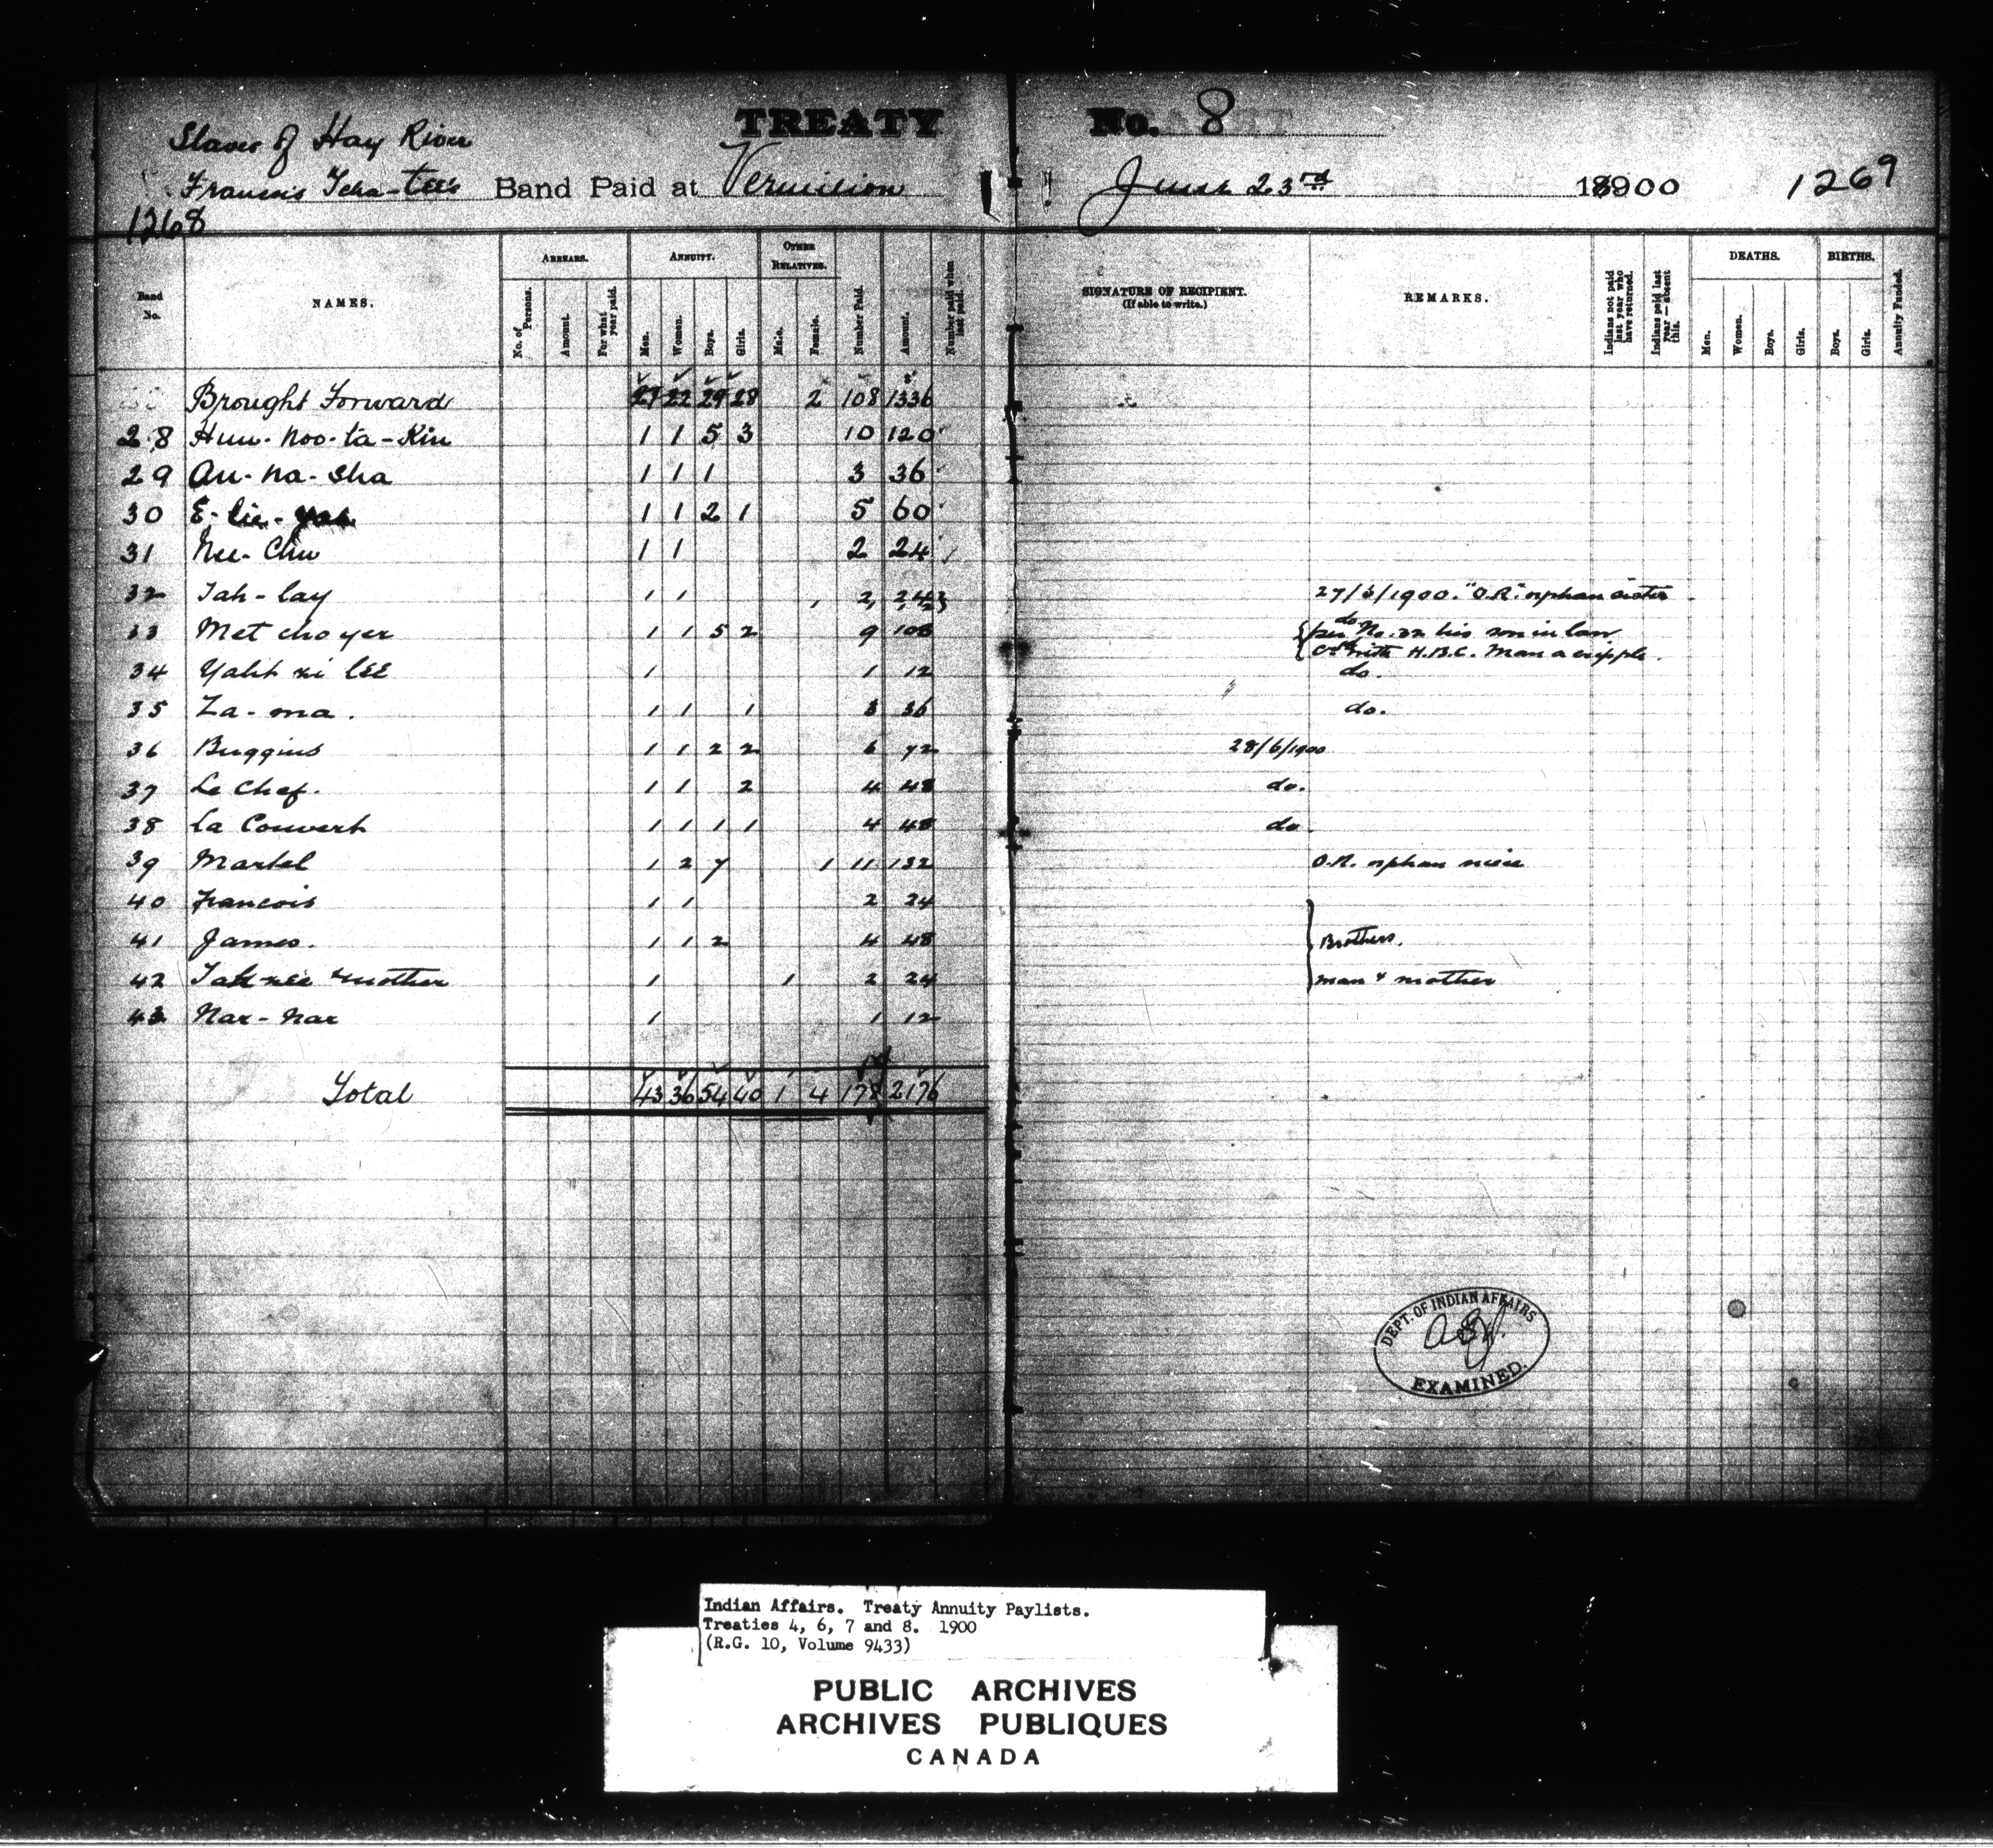 TREATY No. 8
Slaves of Hay River
Francois Tcha-tee's Band Paid at Vermilion June 23rd 18900 1269
1268
Band No. NAMES. ARREARS. ANNUITY. OTHER RELATIVES. Number Paid. Amount. Number paid when last paid. SIGNATURE OF RECIPIENT. (If able to write.) REMARKS. Indians not paid last year who have returned. Indians paid last year—absent this. DEATHS. BIRTHS. Annuity Funded.
No. of Persons. Amount. For what year paid. Men. Women. Boys. Girls. Male. Female. Men. Women. Boys. Girls. Boys. Girls.
Brought Forward 27 22 29 28 2 108 1336
28 Hun-noo-ta-Kin 1 1 5 3 10 120
29 Au-na-sha 1 1 1 3 36
30 E-lie- 1 1 2 1 5 60
31 Nee-Chu 1 1 2 24
32 Tah-lay 1 1 2 24 27/6/1900. "O.R." orphan sister
33 Met cho yer 1 1 5 2 9 108 do
per No. 32 his son in law
with H.B.C. Man a cripple.
34 ni lee 1 1 12 do.
35 Za-ma. 1 1 1 3 36 do.
36 Buggins 1 1 2 2 6 72 28/6/1900
37 Le Chef. 1 1 2 4 48 do.
38 La Couvert 1 1 1 1 4 48 do
39 Martel 1 2 7 1 11 132 O.R. orphan niece
40 Francois 1 1 2 24
41 James. 1 1 2 4 48 Brothers.
42 Tah-nee & mother 1 1 2 24 man & mother
43 Nar-nar 1 1 12
Total 43 36 54 40 1 4 178 2176
DEPT. OF INDIAN AFFAIRS
EXAMINED.
Indian Affairs. Treaty Annuity Paylists.
Treaties 4, 6, 7 and 8. 1900
(R.G. 10, Volume 9433)
PUBLIC ARCHIVES
ARCHIVES PUBLIQUES
CANADA